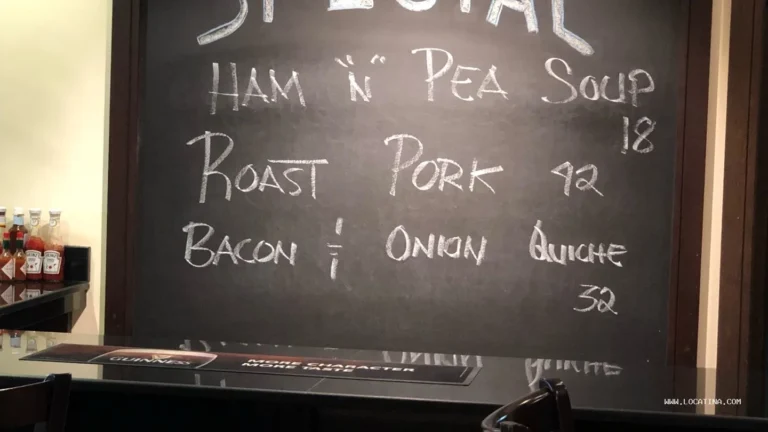 SPECIAL
HAM "N" PEA SOUP
18
ROAST PORK 42
BACON & ONION QUICHE
32
GUINNESS
MORE CHARACTER
WWW.LOCATINA.COM